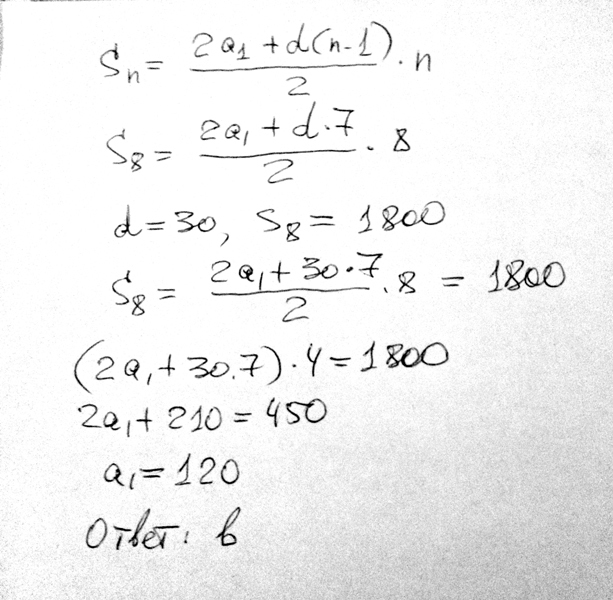 Sn = (2a₁ + d(n-1))/2 · n
S₈ = (2a₁ + d·7)/2 · 8
d = 30, S₈ = 1800
S₈ = (2a₁ + 30·7)/2 · 8 = 1800
(2a₁ + 30.7) · 4 = 1800
2a₁ + 210 = 450
a₁ = 120
Ответ: в